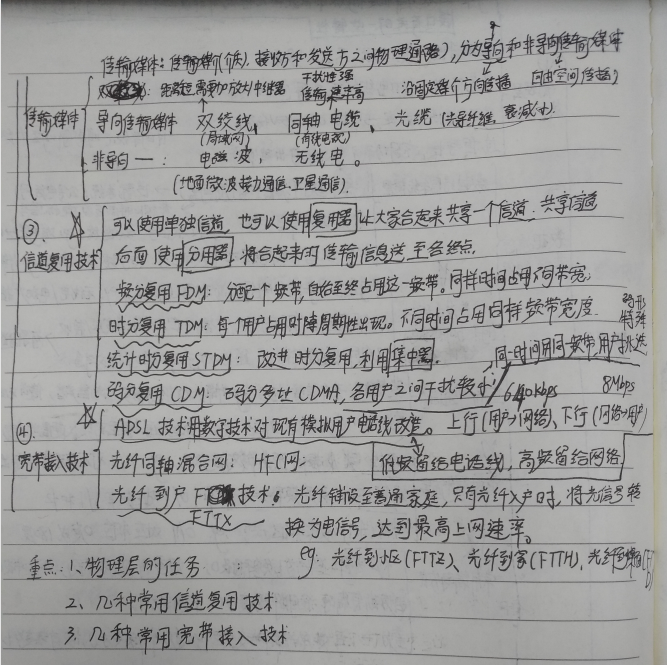 传输媒体：传输媒介(介质)，接收方和发送方之间物理通路，分为导向和非导向传输媒体
距离远需要加放大/中继器 干扰性强 传输速率高 沿固定媒介方向传播 自由空间传播)
传输媒体 导向传输媒体 双绞线、同轴电缆、光缆(光导纤维，衰减小).
(局域网) (有线电视)
非导向一一： 电磁波，无线电。
(地面微波接力通信、卫星通信).
③ 可以使用单独信道，也可以使用复用器让大家合起来共享一个信道：共享信道
信道复用技术 后面使用分用器，将合起来的传输信息送至各终点.
频分复用FDM：分配一个频带，自始至终占用这一频带。同样时间占用不同带宽；
时分复用TDM：每个用户占用时隙周期性出现。不同时间占用同样频带宽度. 码形特殊
统计时分复用STDM：改进时分复用，利用集中器. 同一时间用同一频带，用户
码分复用CDM：码分多址CDMA，各用户之间干扰较小 640kbps 8Mbps
④ ADSL技术用数字技术对现有模拟用户电话线改造。上行(用户→网络)、下行(网络→用户)
宽带接入技术 光纤同轴混合网：HFC网： 低频留给电话线，高频留给网络
光纤到户 技术：光纤铺设至普通家庭，只有光纤入户时，将光信号转
FTTX 换为电信号，达到最高上网速率。
重点：1、物理层的任务 eg：光纤到小区(FTTZ)、光纤到家(FTTH)、光纤到
2、几种常用信道复用技术
3、几种常用宽带接入技术